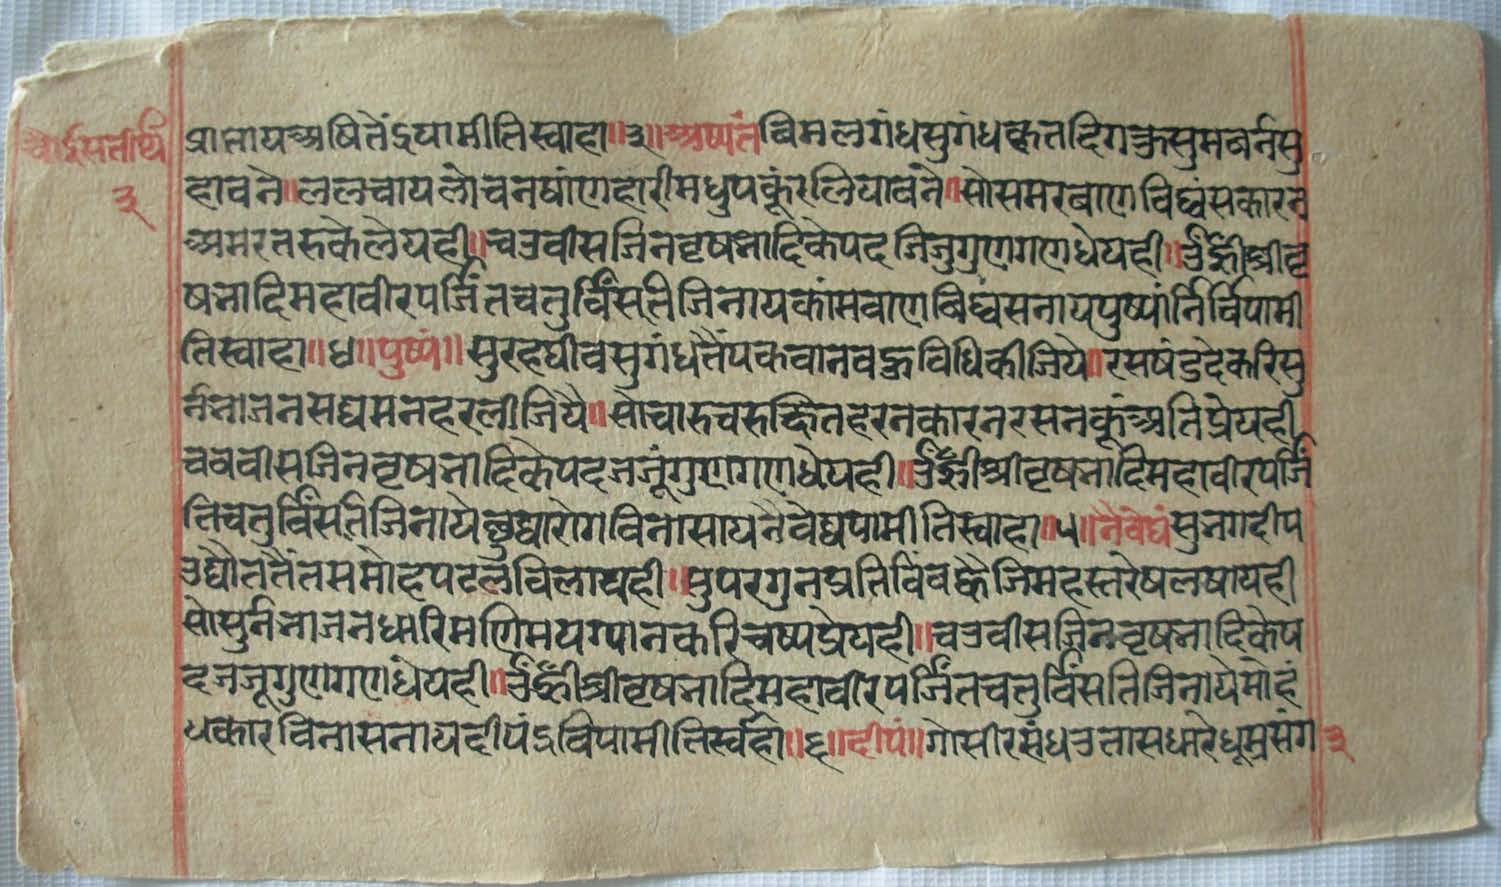 प्राप्ताय अषितंऽपामीति स्वाहा॥३॥अष्यतं विमल गंध सुगंध कृत दिग कुसुम बर्न सु
हावने॥ललचाय लोचन षांण हारी मधुप कूं रलियावने॥सो समर बाण विध्वंस कारन
अमर तरु के लेय ही॥चउवीस जिन वृषभादि के पद जिजु गुण गण धेय ही॥उँ ह्रीं श्री वृ
षभादि महावीर पर्जिंत चतुर्विंसति जिनाय कांमवाण विध्वंसनाय पुष्पां निर्विपामी
ति स्वाहा॥४॥पुष्पं॥सुरह घीव सुगंध तैं पकवान वहु विधि कीजिये॥रस षंड दे करि सु
र्न भाजन सद्य मन हर लीजियै॥सो चारु चरु छित हरन कारन रसन कूं अति प्रेय ही
चउवीस जिन वृषभादि के पद जजूं गुण गण धेय ही॥उँ ह्रीं श्री वृषभादि महावीर पर्जिं
ति चतुर्विंसति जिनाय छुद्या रोग विनासाय नैवेद्य पामीति स्वाहा॥५॥नैवेद्यं सुभग दीप
उद्यौत तैं तम मोह पटल विलाय ही॥सु पर गुन प्रतिविंव ह्वै जिम हस्त रेष लषाय ही
सो सुर्न भाजन धारि मणिमय ग्यान करि चष्य प्रेय ही॥चउवीस जिन वृषभादि के प
द जजू गुण गण धेय ही॥उँ ह्रीं श्री वृषभादि महावीर पर्जिंत चतुर्विंसति जिनाय मोहं
धकार विनासनाय दीपंऽविपामीति स्वहा॥६॥दीपं॥गोसीर संध उभास धारे धूम्र संग
३
३